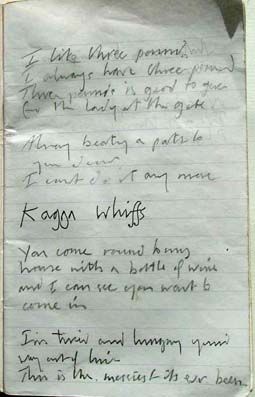 I like three pound
I always have three pound
Three pounds is good to give
to the lady at the gate
Always beating a path to
your door
I can't do it any more
Kagga Whiffs
You come round to my
house with a bottle of wine
and I can see you want to
come in
I'm tired and hungry your
way out of line
This is the messiest its ever been